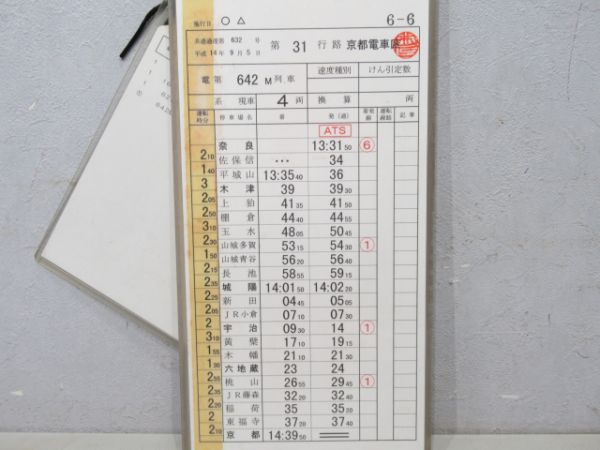 施行日 ○ △ 6-6
共通通達第 632 号
平成 14年 9月 5日
第 31 行路 京都電車区
電 電 642 M列車 速度種別 けん引定数
系 現車 4 両 換算 両
運転時分 停車場名 着 発(通) 着発線 運転線路 記事
ATS
奈良 13:31 50 ⑥
2 10 佐保信 … 34
1 40 平城山 13:35 40 36
3 木津 39 39 30
2 05 上狛 41 35 41 50
2 50 棚倉 44 40 44 55
3 10 玉水 48 05 50 45
2 30 山城多賀 53 15 54 30 ①
1 50 山城青谷 56 20 56 40
2 15 長池 58 55 59 15
2 35 城陽 14:01 50 14:02 20
2 25 新田 04 45 05 05
2 05 JR小倉 07 10 07 30
2 宇治 09 30 14 ①
3 10 黄檗 17 10 19 15
1 55 木幡 21 10 21 30
1 30 六地蔵 23 24
2 55 桃山 26 55 29 45 ①
2 35 JR藤森 32 20 32 40
2 20 稲荷 35 35 20
2 東福寺 37 20 37 40
2 10 京都 14:39 50